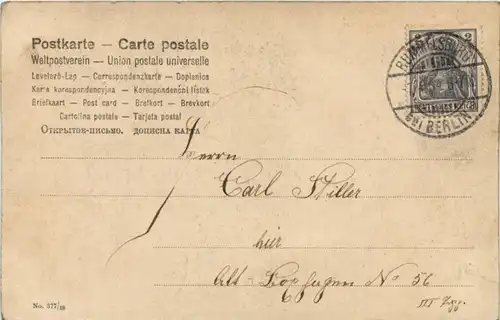 Postkarte – Carte postale
Weltpostverein – Union postale universelle
Levelező-Lap – Correspondenzkarte – Dopisnice
Karta korespondencyjna – Korespondenční lístek
Briefkaart – Post card – Brefkort – Brevkort
Cartolina postale – Tarjeta postal
Открытое-письмо. дописна карта
RUMMELSBURG
bei BERLIN
Herrn
Carl Stiller
hier
Alt-Boxhagen No 56
III
No. 377/